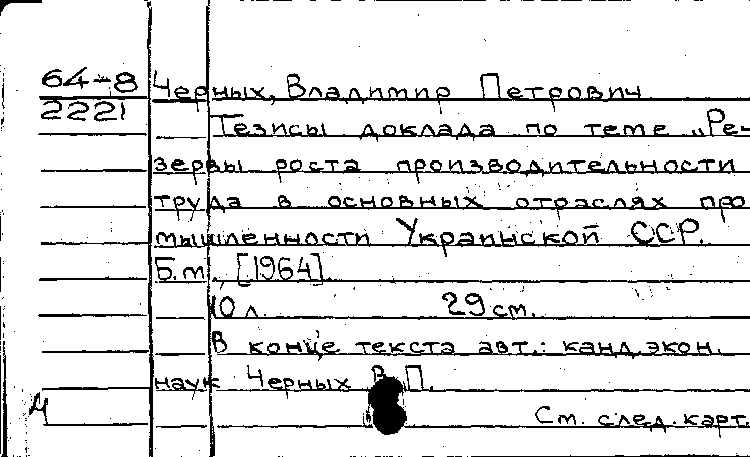 64-8 Черных, Владимир Петрович
2221
Тезисы доклада по теме „Ре-
зервы роста производительности
труда в основных отраслях про
мышленности Украинской ССР.
Б.м., [1964].
10 л. 29 см.
В конце текста авт.: канд. экон.
наук Черных В.П.
Ч
См. след. карт.